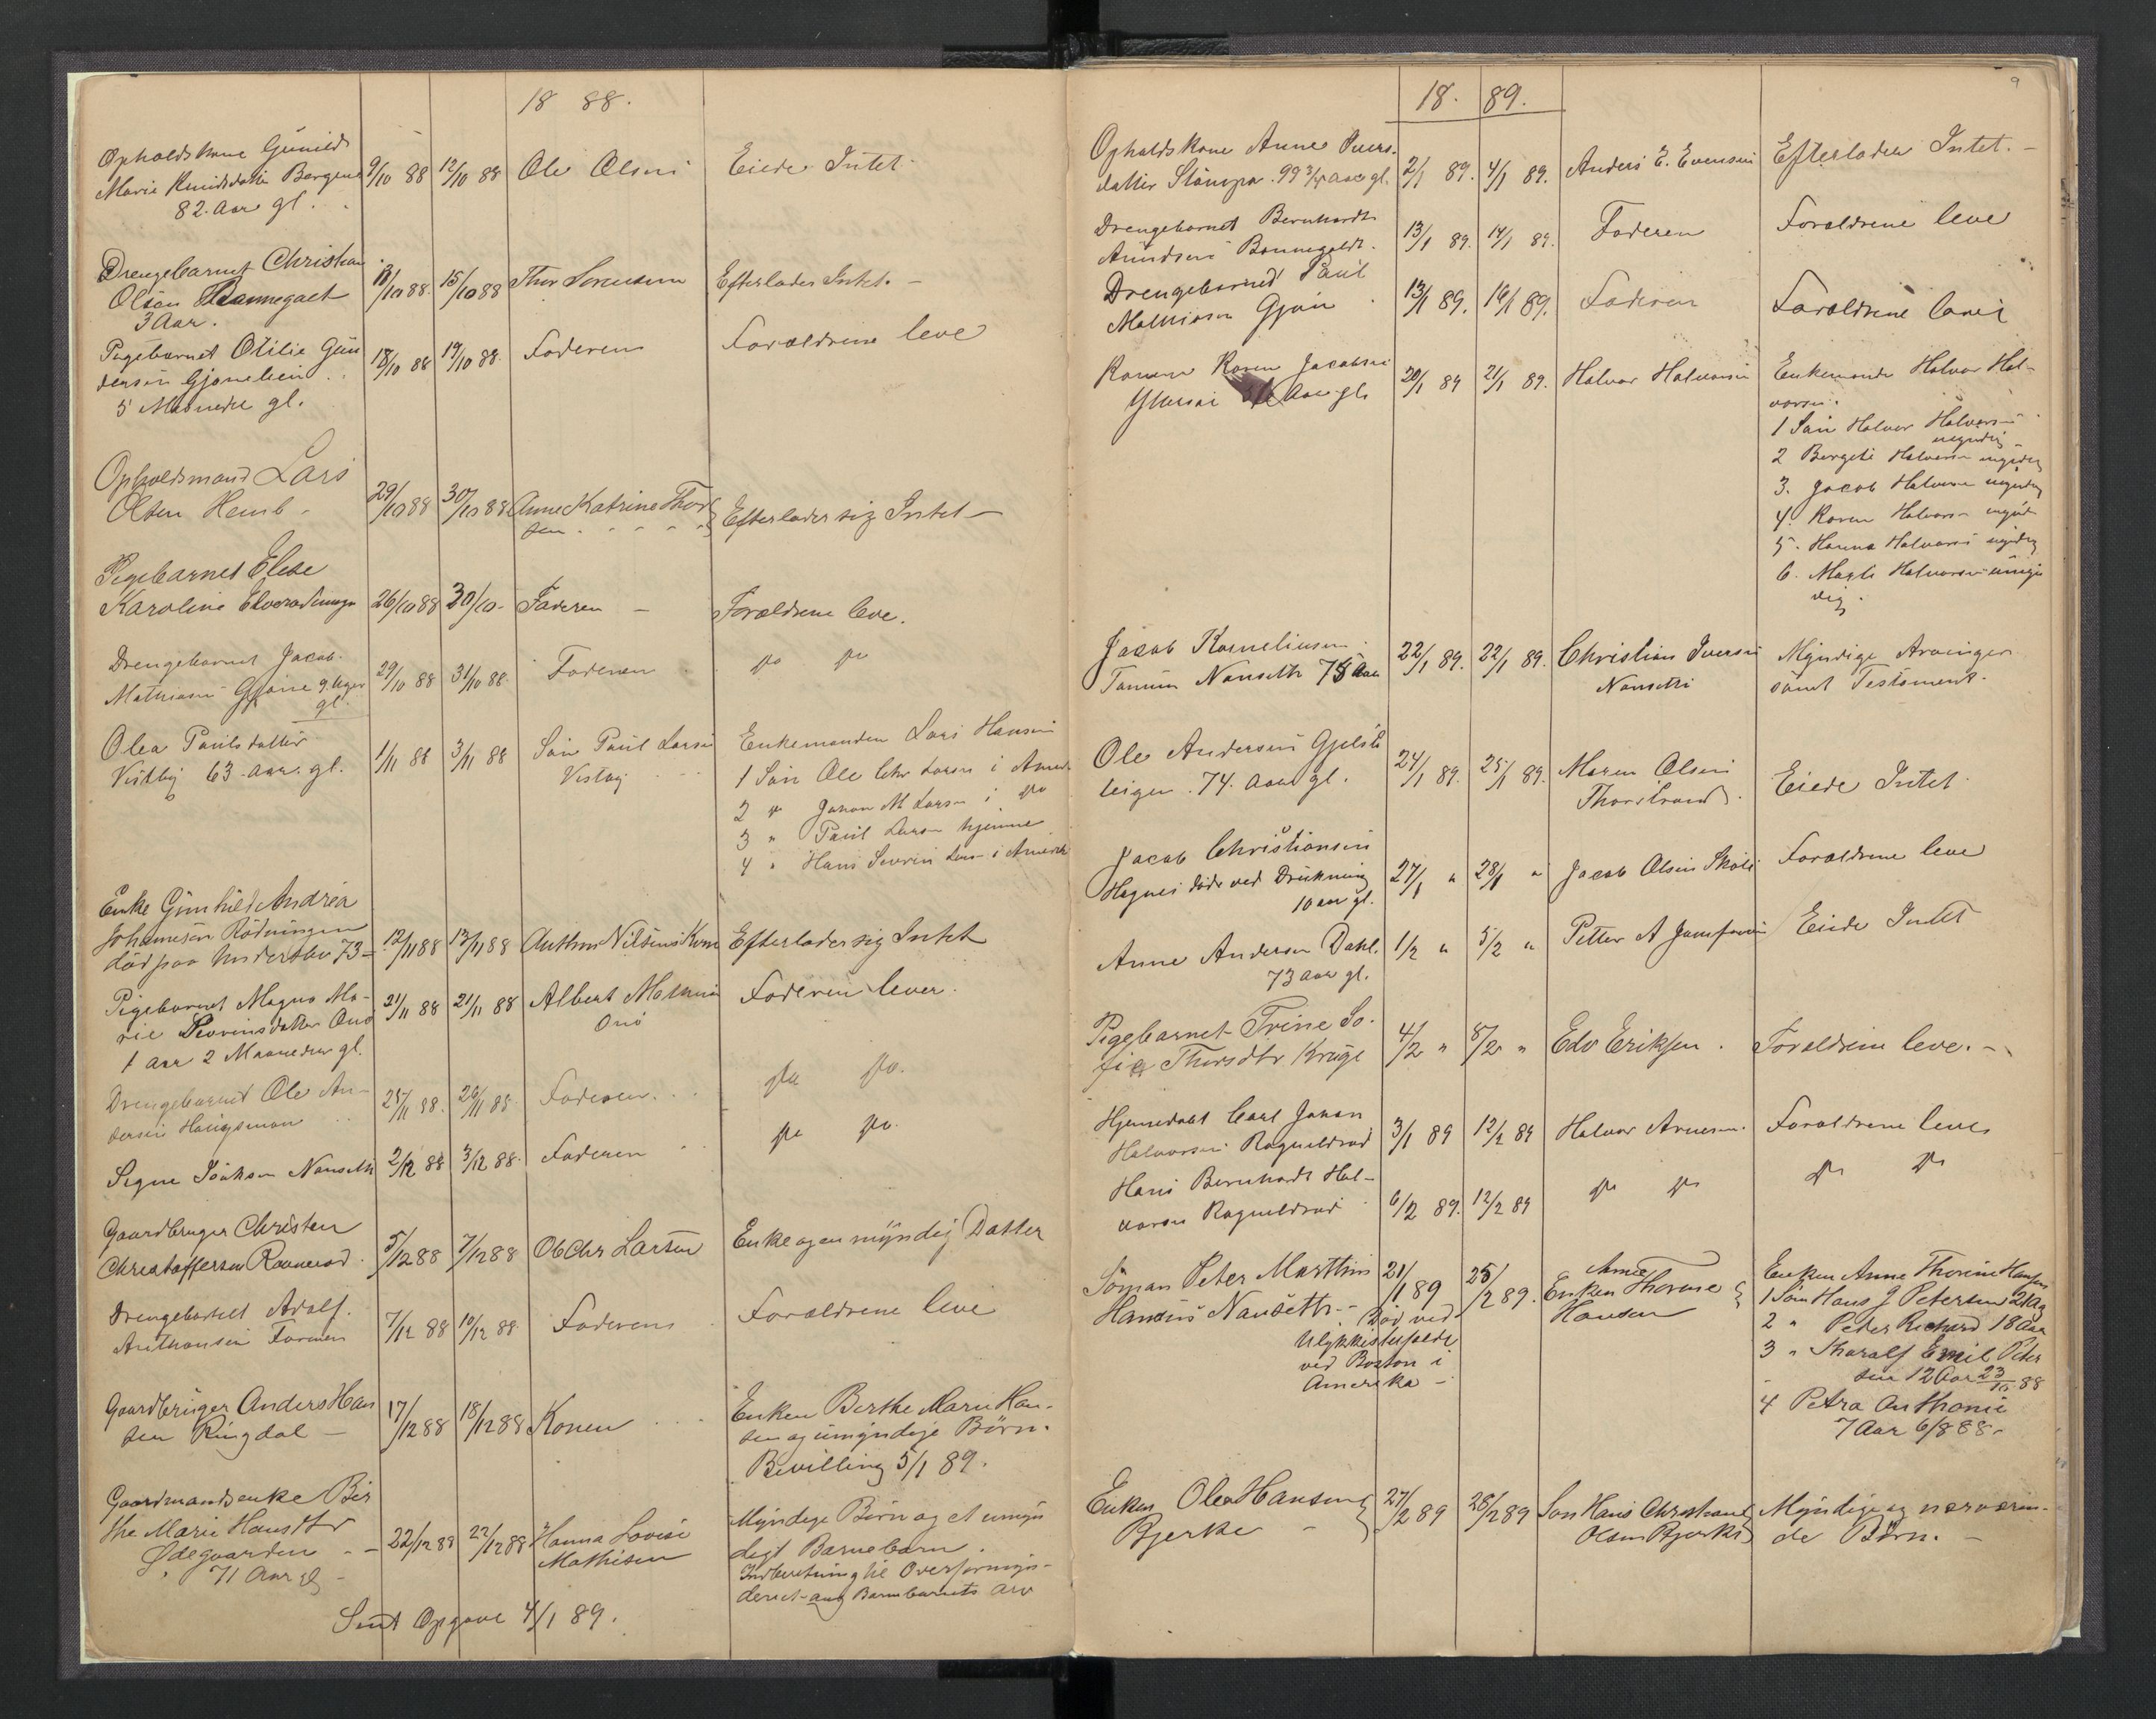 18 88.
Opholdskone Gunild
Marie Knudsdatter Bergene 9/10 88 12/10 88 Ole Olsen Eiede Intet.
82. Aar gl.
Drengebarnet Christian
Olsen Bannegaet /10 88. 15/10 88 Thor Sorensen Efterlader Intet. -
3 Aar.
Pigebarnet Otilie Gun
dersen Gjonelien 18/10 88 19/10 88. Faderen Forældrene leve
5 Maaneder gl.
Opholdsmand Lars
Olsen Hemb - 29/10 88 30/10 88 Anne Katrine Thor
sen. Efterlader sig Intet -
Pigebarnet Elese
Karoline 26/10 88 30/10 - Faderen - Forældrene leve.
Drengebarnet Jacob.
Mathiasen 9. Uger 29/10 88 31/10 88. Faderen do do
gl.
Olea Paulsdatter
Vistby 63 Aar. gl. 1/11 88 3/11 88 Søn Paul Larsen Enkemanden Lars Hansen
1 Søn Ole Chr Larsen i Amer.
2 " Johan M Larsen i do
3 " Paul Larsen hjemme
4 " Hans Severin Larsen i Amerik
Enke Gunhild Andrea
Johannesen Rødningen
død paa 73 - 12/11 88 13/11 88 Anthon Nilsens Kone Efterlader sig Intet
Pigebarnet Magna Ma-
rie Severinsdatter Onø 21/11 88 21/11 88 Albert Mathis Faderen lever.
Onø
1 Aar 2 Maaneder gl.
Drengebarnet Ole An-
dersen Haugsman 25/11 88. 26/11 88. Faderen. do do.
Signe Isaksen Nanseth 2/12 88 3/12 88. Faderen do do.
Gaardbruger Christen
Christoffersen Ravnerød. 5/12 88 7/12 88 Ol Chr Larsen Enke og en myndig Datter
Drengebarnet Adolf.
Anthonsen Farmen 7/12 88 10/12 88. Faderen Forældrene leve
Gaardbruger Anders Han
sen Ringdal - 17/12 88 18/12 88 Konen Enken Berthe Maren Han-
sen og umyndige Børn.
Bevilling 5/1 89.
Gaardmandsenke Ber
the Marie Hansdtr
Ødegaarden - - 22/12 88 22/12 88 Hanna Lovise
Mathisen Myndige Børn og et umyn
digt Barnebarn.
71 Aar gl - Indberetning til Overformyn-
deriet ang Barnebarnets Arv
Sendt Opgave 4/1 89.
9
18. 89.
Opholdskone Anne Ivers-
datter Stømpa. 99 3/4 Aar gl. 2/1 89. 4/1 89. Anders E. Evensen Efterlader Intet. -
Drengebarnet Bernhardt
Amundsen Bannegaldt. 13/1 89. 14/1 89. Faderen Forældrene leve
Drengebarnet Paul
Mathiasen 13/1 89. 16/1 89. Faderen Forældrene leve
Konen Karen Jacobsen
Aar gl. 20/1 89 21/1 89. Halvor Halvorsen Enkemand Halvor Hal-
vorsen.
1 Søn Halvor Halvorsen
myndig -
2 Bergete Halvorsen myndig
3. Jacob Halvorsen myndig
4. Karen Halvorsen myndi
5. Hanna Halvorsen myndig
6. Marte Halvorsen umyn
dig.
Jacob Korneliusen
Tamun Nanseth 75 Aar 22/1 89. 22/1 89. Christian Iversen
Nanseth Myndige Arvinger
samt Testament.
Ole Andersen Gjelste
leigen. 74. Aar gl. 24/1 89. 25/1 89. Maren Olsen
Thorstrand. Eiede Intet.
Jacob Christiansen
Hagnes døde ved Drukning 27/1 " 28/1 " Jacob Olsen Skoli Forældrene leve
10 aar gl.
Anne Andersen Dahl. 1/2 " 5/2 " Petter A Eiede Intet
73 Aar gl.
Pigebarnet Trine So-
fie Thorsdtr Kruge 4/2 " 8/2 " Edv Eriksen. Forældrene leve. -
Hjemedøbt Carl Johan
Halvorsen Ragnildrød 3/1 89 12/2 89 Halvor Arnesen. Forældrene leve
Hans Bernhardt Hal-
vorsen Ragnildrød 6/2 89. 12/2 89 do do do do
Søman Peter Marthin
Hansen Nanseth. - 21/1 89 25/2 89. Anne
Enken Thorine
Hansen
Død ved
Ulykkestilfælde
ved Boston i
Amerika -
Enken Anne Thorine Hansen
1 Søn Hans J Petersen 21 Aar
2 " Peder Richard 18 Aar
3 " Tharalf Emil Peter
sen 12 Aar 23/10 88
4 Petra Anthonie
7 Aar 6/8 88 -
Enken Olea Hansen
Bjerke - 27/2 89 28/2 89 Søn Hans Christian
Olsen Bjerke Myndige og nærværen-
de Børn. -